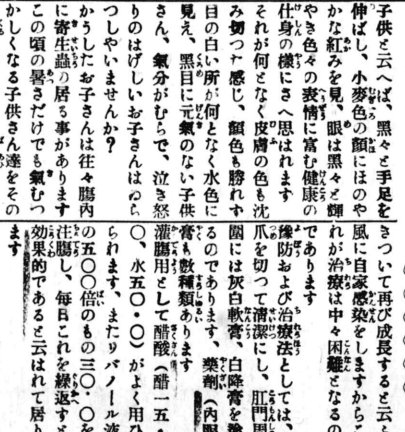 子供と云へば、黒々と手足を
伸ばし、小麥色の顔にほのや
かな紅みを見、眼は黒々と輝
やき色々の表情に富む健康の
仕身の樣にさへ思はれます
それが何となく皮膚の色も沈
み切つた感じ、顔色も勝れず
目の白い所が何となく水色に
見え、黒目に元氣のない子供
さん、氣分がむらで、泣き怒
りのはげしいお子さんはゐら
つしやいませんか?
かうしたお子さんは往々膓内
に寄生蟲の居る事があります
この頃の暑さだけでも氣むつ
かしくなる子供さん達をその
きついて再び成長すると云ふ
風に自家感染をしますからこ
れが治療は中々困難となるの
であります
豫防および治療法としては、
爪を切つて清潔にし、肛門周
圍には灰白軟膏、白降膏を塗
るのであります、藥劑（内服
藥も數種類あります
灌膓用として醋酸（醋一五・
〇、水五〇・〇）がよく用ひ
られます、またリバノール液
の五〇〇倍のもの三〇・〇を
注膓し、毎日これを繰返すと
効果的であると云はれて居り
ます